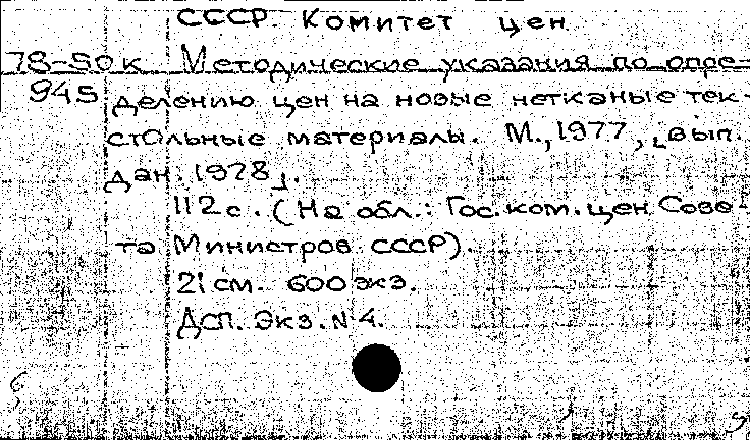 СССР. Комитет цен
78-50к Методические указания по опре-
945 делению цен на новые нетканые тек-
стольные материалы. М., 1977, [вып.
дан. 1978].
112с. (На обл.: Гос. ком. цен Сове-
та Министров СССР).
21 см. 600 экз.
Дсп. Экз. N 4.